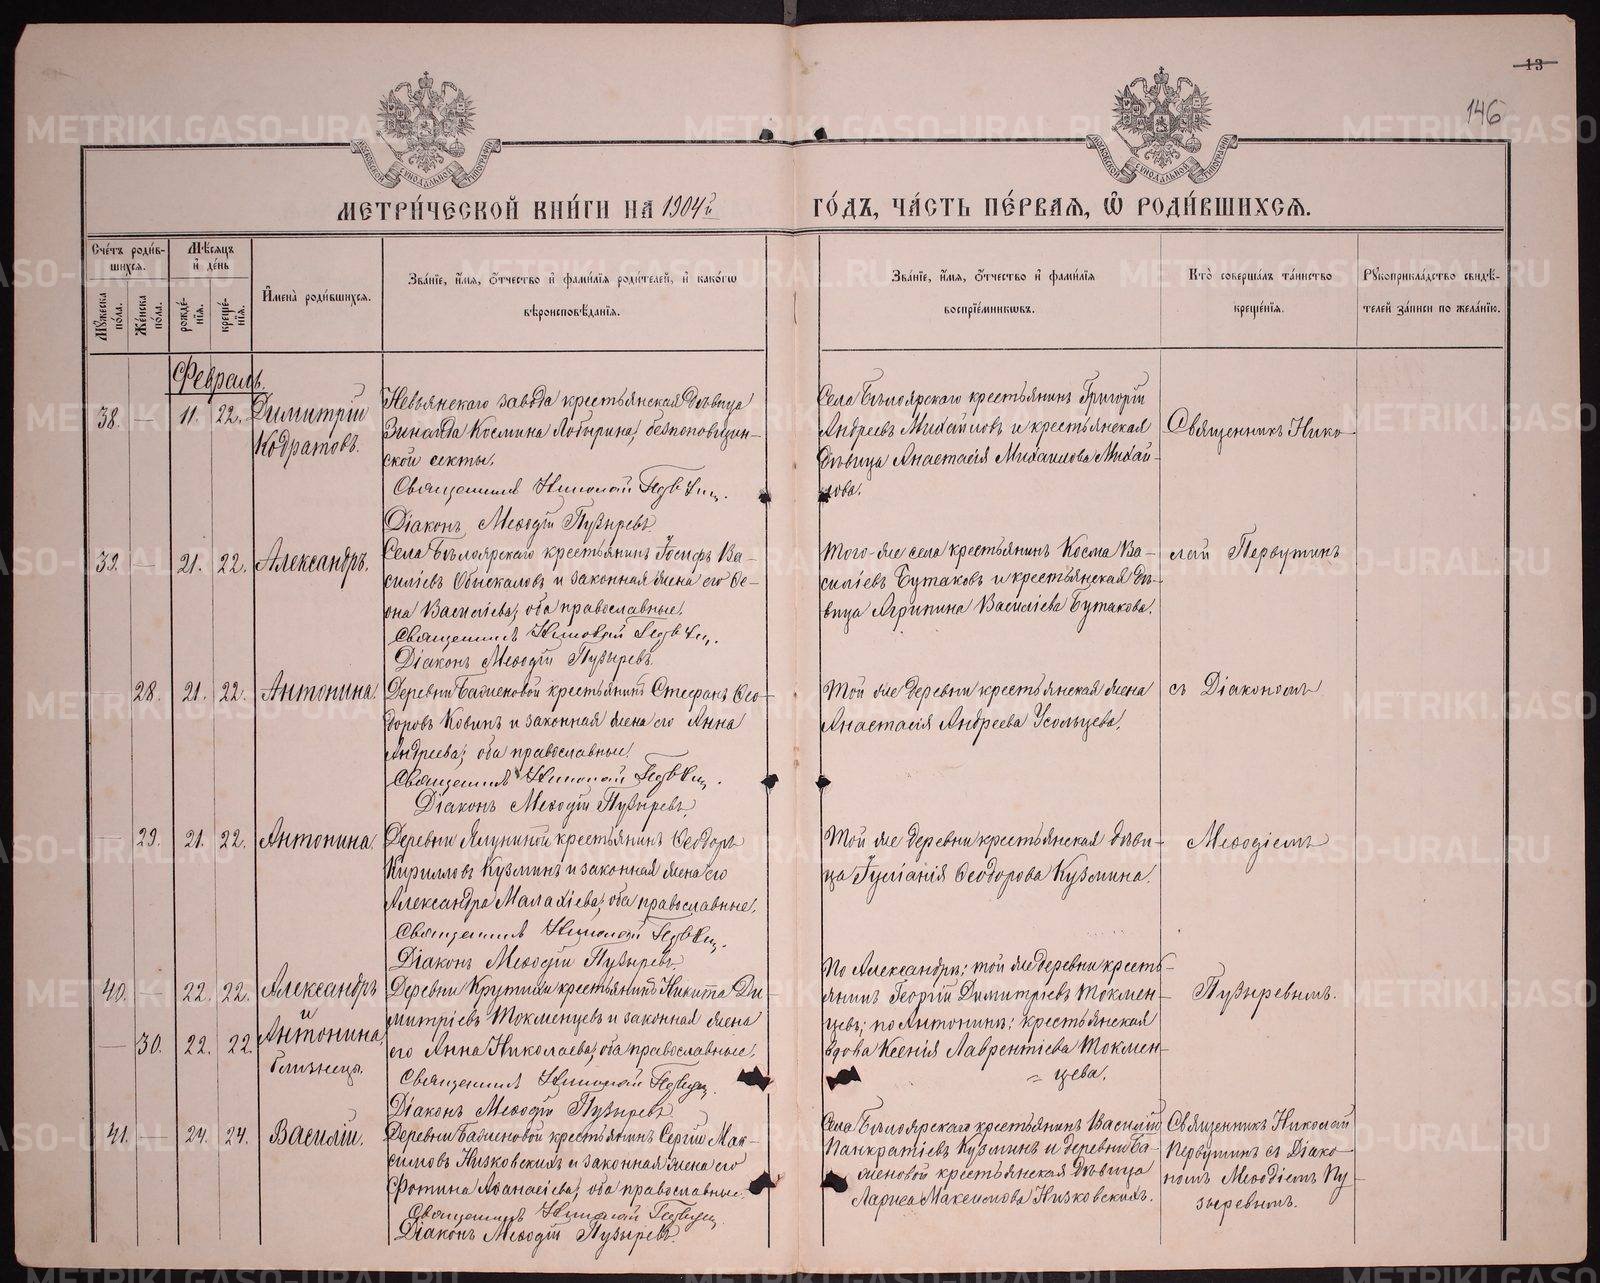 13
146
МОСКОВСКОЙ СѴНОДАЛЬНОЙ ТИПОГРАФІИ
МОСКОВСКОЙ СѴНОДАЛЬНОЙ ТИПОГРАФІИ
МЕТРИ́ЧЕСКОЙ КНИ́ГИ НА 1904й
ГО́ДЪ, ЧА́СТЬ ПЕ́РВАЯ, Ѽ РОДИ́ВШИХСЯ.
Сче́тъ роди́в-
шихся.
Мꙋ́жеска по́ла.
Же́нска по́ла.
Мѣ́сяцъ
и҆ де́нь
рожде́-
нїя.
креще́-
нїя.
И҆мена̀ роди́вшихся.
Зва́нїе, и҆́мя, ѻ҆́тчество и҆ фами́лїя роди́телей, и҆ како́гѡ
вѣроисповѣ́данїя.
Зва́нїе, и҆́мя, ѻ҆́тчество и҆ фами́лїя
воспрїе́мникѡвъ.
Кто̀ соверша́лъ та́инство
креще́нїя.
Рꙋкоприкла́дство свидѣ́-
телей за́писи по жела́нїю.
Февраль.
38. — 11. 22. Димитрій
Кодратовъ.
Невьянскаго завода крестьянская дѣвица
Зинаида Космина Лобырина, безпоповщин-
ской секты.
Священникъ Николай
Діаконъ Меѳодій Пузыревъ
Села Бѣлоярскаго крестьянинъ Григорій
Андреевъ Михайловъ и крестьянская
дѣвица Анастасія Михаилова Михай-
лова.
Священникъ Нико-
39. — 21. 22. Александръ.
Села Бѣлоярскаго крестьянинъ Іосифъ Ва-
силіевъ Обнскаловъ и законная жена его Ѳе-
она Василіева, оба православные.
Священникъ Николай
Діаконъ Меѳодій Пузыревъ.
Того-же села крестьянинъ Косма Ва-
силіевъ Бутаковъ и крестьянская дѣ-
вица Агрипина Василіева Бутакова.
лай Первутинъ
28. 21. 22. Антонина.
Деревни Баженовой крестьянинъ Стефанъ Ѳео-
доровъ Ковинъ и законная жена его Анна
Андреева, оба православные
Священникъ Николай
Діаконъ Меѳодій Пузыревъ
Той же деревни крестьянская жена
Анастасія Андреева Усольцева.
съ Діакономъ
— 29. 21. 22. Антонина.
Деревни Ялуниной крестьянинъ Ѳеодоръ
Кирилловъ Кузминъ и законная жена его
Александра Малахіева, оба православные.
Священникъ Николай
Діаконъ Меѳодій Пузыревъ.
Той же деревни крестьянская дѣви-
ца Іуліанія Ѳеодорова Кузмина.
Меѳодіемъ
40. — 22. 22. Александръ
и
— 30. 22. 22. Антонина,
близнецы.
Деревни Крутихи крестьянинъ Никита Ди-
митріевъ Токменцевъ и законная жена
его Анна Николаева, оба православные.
Священникъ Николай
Діаконъ Меѳодій Пузыревъ
По Александрѣ; той же деревни кресть-
янинъ Георгій Димитріевъ Токмен-
цевъ; по Антонинѣ; крестьянская
вдова Ксенія Лаврентіева Токмен-
= цева.
Пузыревымъ.
41. — 24. 24. Василій.
Деревни Баженовой крестьянинъ Сергій Мак-
симовъ Низковскихъ и законная жена его
Фотина Аѳанасіева, оба православные.
Священникъ Николай
Діаконъ Меѳодій Пузыревъ.
Села Бѣлоярскаго крестьянинъ Василій
Панкратіевъ Кузминъ и деревни Ба-
женовой крестьянская дѣвица
Лариса Максимова Низковскихъ.
Священникъ Николай
Первутинъ съ Діако-
номъ Меѳодіемъ Пу-
зыревымъ.
METRIKI.GASO-URAL.RU